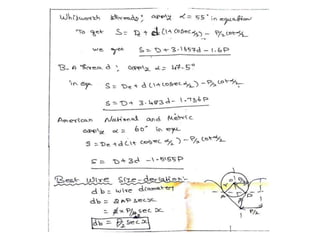 Whitworth threads; apply α = 55° in equation
To get S = De + d (1+ cosec α/2) - P/2 cot α/2
we get S = D + 3.1657d - 1.6P
B.A Thread; apply α = 47.5°
in eqn S = De + d (1+ cosec α/2) - P/2 cot α/2
S = D + 3.483d - 1.736P
American National and Metric
apply α = 60° in eqn
S = De + d (1+ cosec α/2) - P/2 cot α/2
S = D + 3d - 1.5155P
Best Wire Size-derivation:
db = wire diameter
db = 2AP sec x
= 2 x P/4 sec x
db = P/2 sec x
A
P
P/2